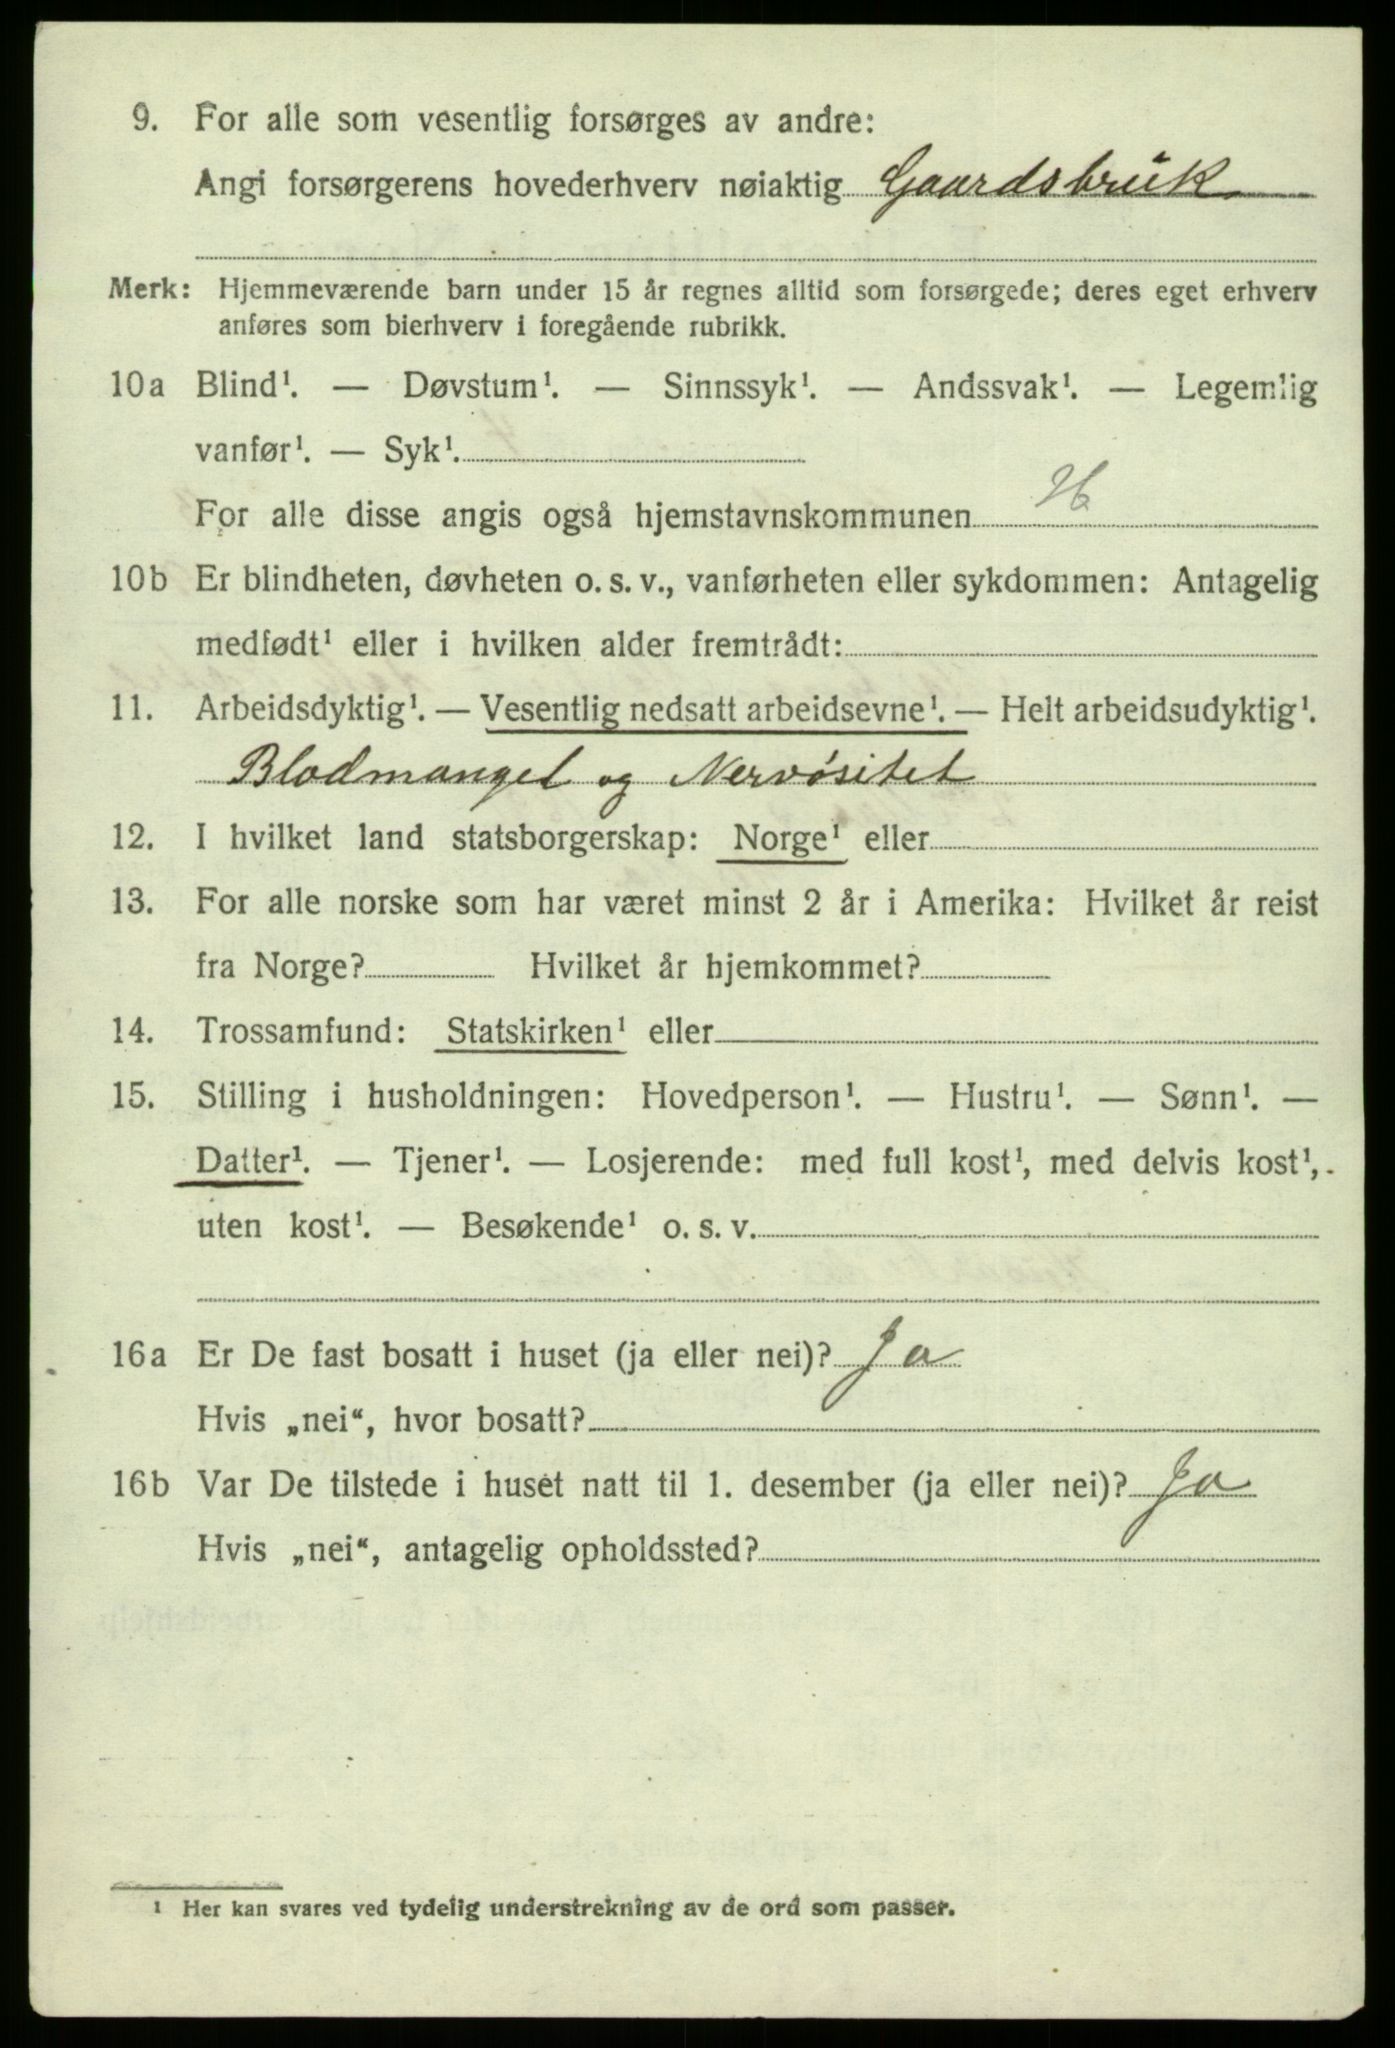 9. For alle som vesentlig forsørges av andre:
Angi forsørgerens hovederhverv nøiaktig Gaardsbruk
Merk: Hjemmeværende barn under 15 år regnes alltid som forsørgede; deres eget erhverv
anføres som bierhverv i foregående rubrikk.
10a Blind¹. — Døvstum¹. — Sinnssyk¹. — Andssvak¹. — Legemlig
vanfør¹. — Syk¹.
For alle disse angis også hjemstavnskommunen H
10b Er blindheten, døvheten o. s. v., vanførheten eller sykdommen: Antagelig
medfødt¹ eller i hvilken alder fremtrådt:
11. Arbeidsdyktig¹. — Vesentlig nedsatt arbeidsevne¹. — Helt arbeidsudyktig¹.
Blodmangel og Nervøsitet
12. I hvilket land statsborgerskap: Norge¹ eller
13. For alle norske som har været minst 2 år i Amerika: Hvilket år reist
fra Norge? Hvilket år hjemkommet?
14. Trossamfund: Statskirken¹ eller
15. Stilling i husholdningen: Hovedperson¹. — Hustru¹. — Sønn¹. —
Datter¹. — Tjener¹. — Losjerende: med full kost¹, med delvis kost¹,
uten kost¹. — Besøkende¹ o. s. v.
16a Er De fast bosatt i huset (ja eller nei)? Ja
Hvis „nei“, hvor bosatt?
16b Var De tilstede i huset natt til 1. desember (ja eller nei)? Ja
Hvis „nei“, antagelig opholdssted?
¹ Her kan svares ved tydelig understrekning av de ord som passer.